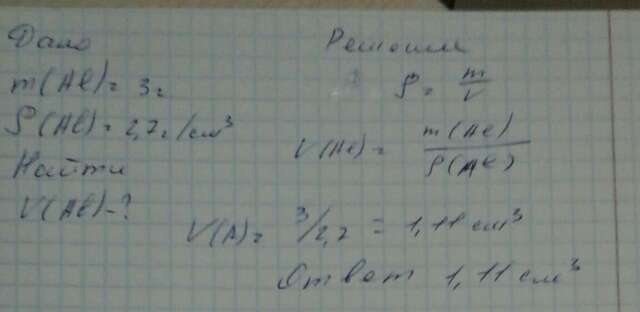 Дано
m(Al) = 3г
ρ(Al) = 2,7г/см³
Найти
V(Al)-?
Решение
ρ = m/V
V(Al) = m(Al)/ρ(Al)
V(A) = 3/2,7 = 1,11 см³
Ответ 1,11 см³